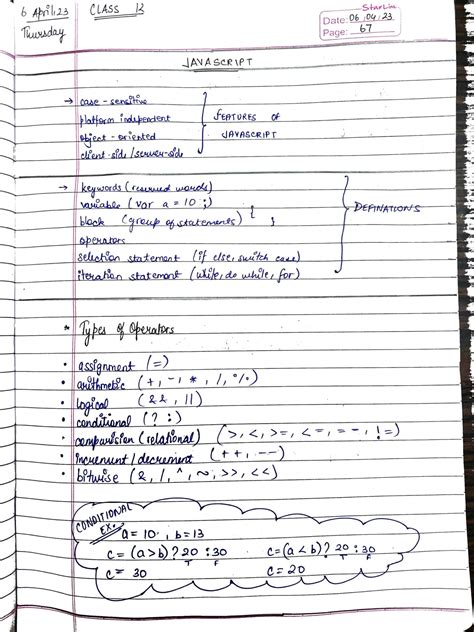 6 April 23
Thursday
CLASS 13
StarLine
Date: 06.04.23
Page: 67
JAVASCRIPT
→ case-sensitive
platform independent
object-oriented
client-side/server-side
FEATURES OF
JAVASCRIPT
→ keywords (reserved words)
variable (var a = 10;)
block (group of statements) { }
operators
selection statement (if else, switch case)
iteration statement (while, do while, for)
DEFINATIONS
* Types of Operators
• assignment (=)
• arithmetic (+, -, *, /, %)
• logical (&&, ||)
• conditional (? :)
• comparision (relational) (>, <, >=, <=, ==, !=)
• increment/decrement (++, --)
• bitwise (&, |, ^, ~, >>, <<)
CONDITIONAL
EX.
a = 10, b = 13
c = (a > b) ? 20 : 30
T F
c = 30
c = (a < b) ? 20 : 30
T F
c = 20